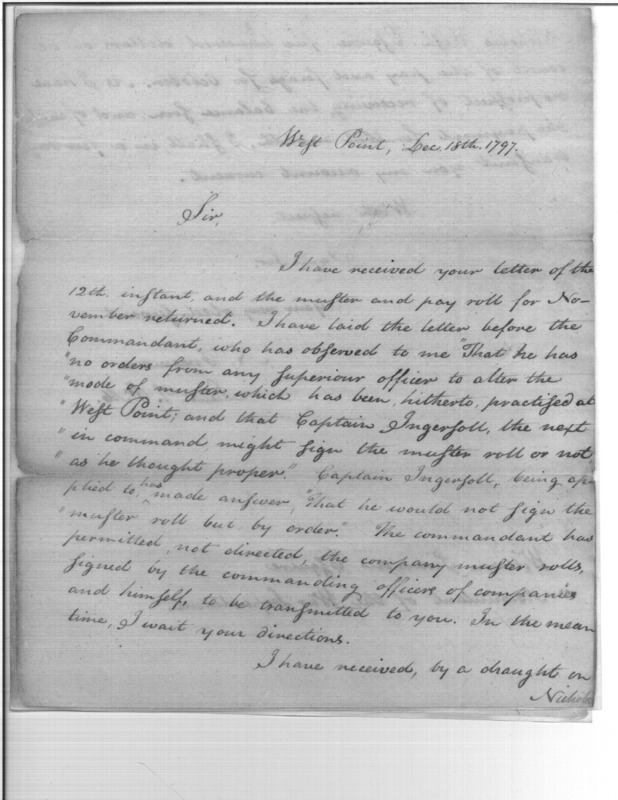 West Point, Dec. 18th. 1797.
Sir,
I have received your letter of the
12th. instant, and the muster and pay roll for No-
vember returned. I have laid the letter before the
Commandant, who has observed to me "That he has
"no orders from any superiour officer to alter the
"mode of muster, which has been, hitherto, practised at
"West Point; and that Captain Ingersoll, the next
"in command, might sign the muster roll or not
"as he thought proper." Captain Ingersoll, being ap-
plied to, has made answer, "That he would not sign the
"muster roll but by order." The commandant has
permitted, not directed, the company muster rolls,
signed by the commanding officers of companies
and himself, to be transmitted to you. In the mean
time, I wait your directions.
I have received, by a draught on
Nichols